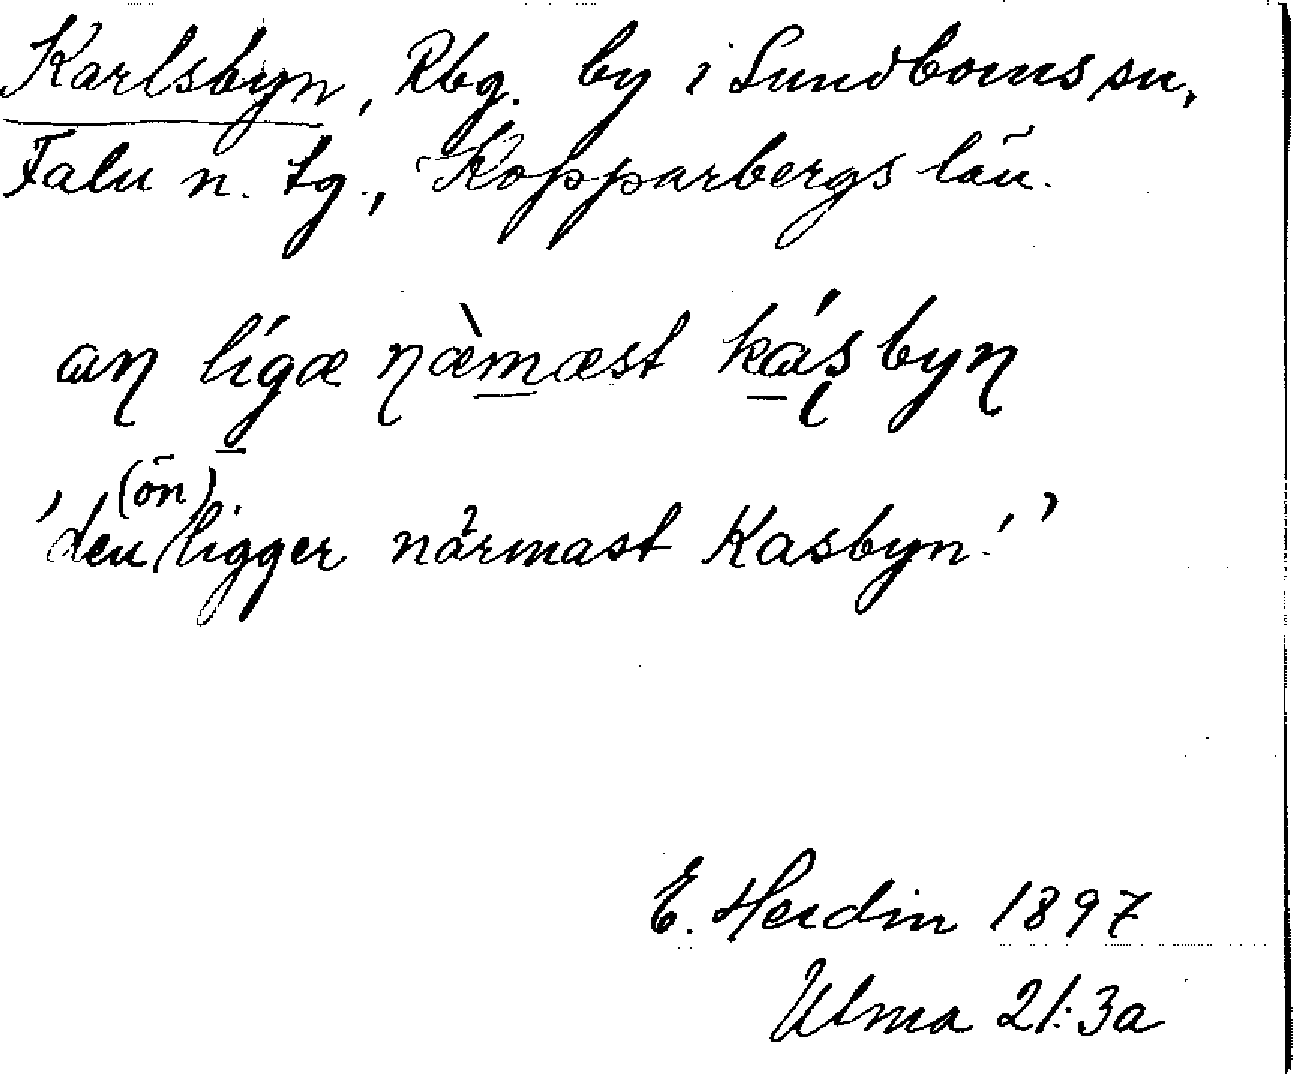 Karlsbyn, Rbg. by i Sundborns sn,
Falu n. tg., Kopparbergs län.
aŋ lígæ ŋæ̀m̲æst ká̲s̨byŋ
(ön)
'den ligger närmast Kasbyn.'
E. Herdin 1897
Ulma 21:3a